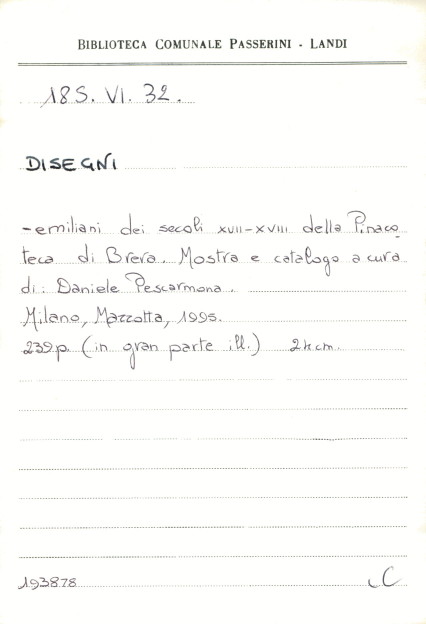 BIBLIOTECA COMUNALE PASSERINI - LANDI
18S. VI. 32.
DISEGNI
- emiliani dei secoli XVII-XVIII della Pinaco-
teca di Brera. Mostra e catalogo a cura
di: Daniele Pescarmona.
Milano, Mazzotta, 1995.
239p. (in gran parte ill.) 24cm.
193878
C